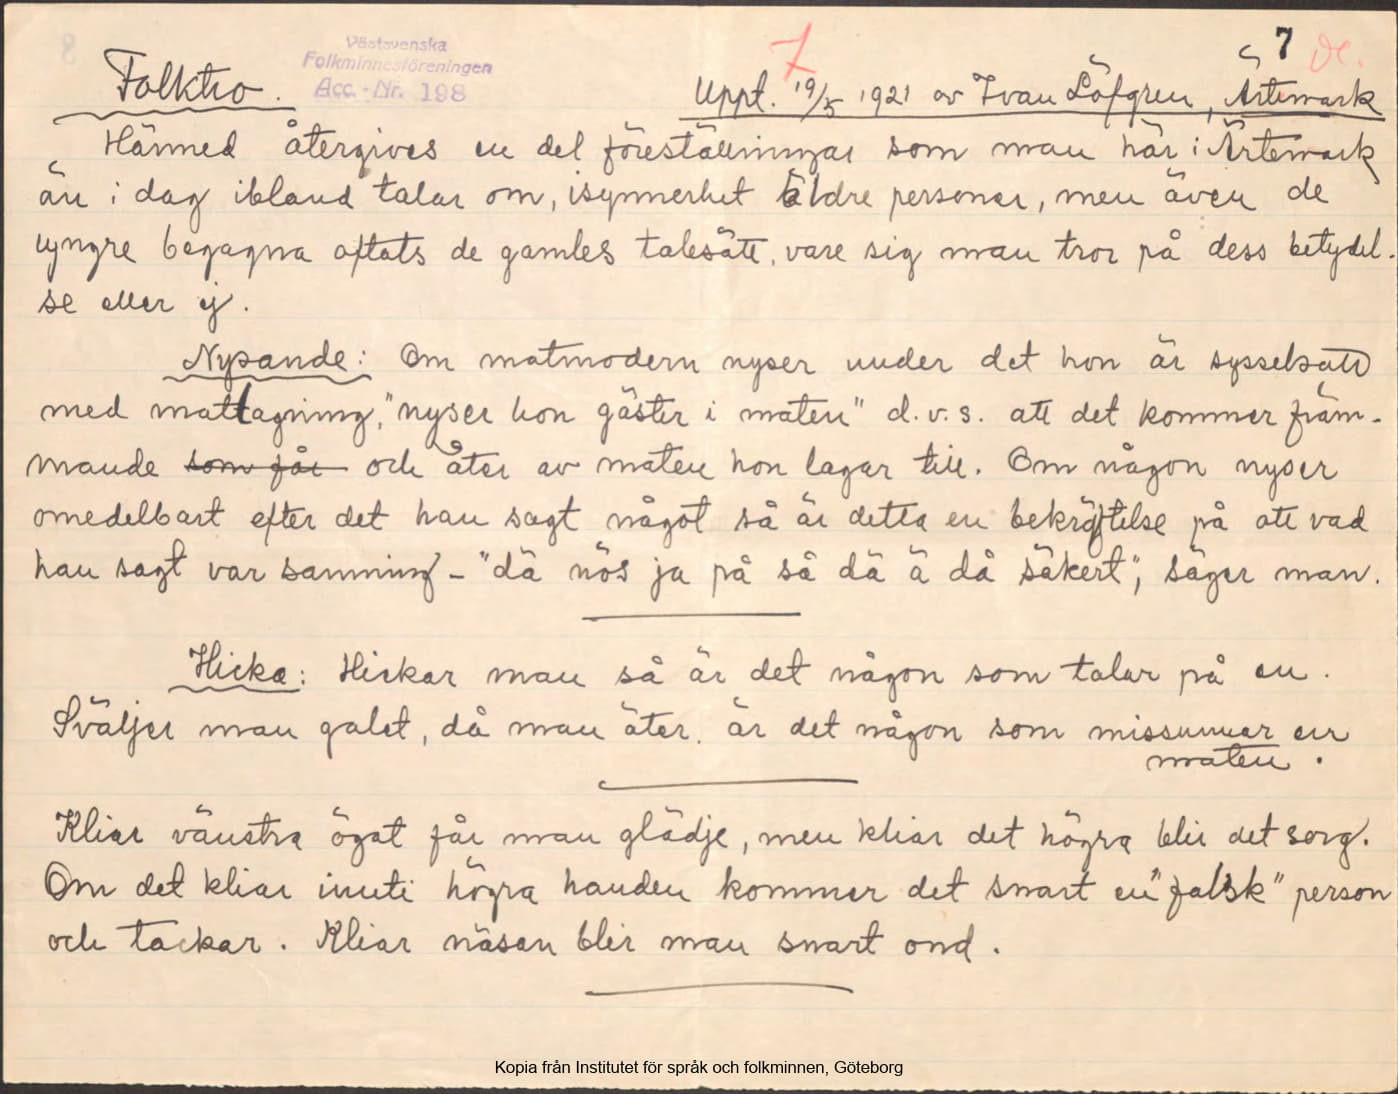 Västsvenska
Folkminnesföreningen
Acc.-Nr. 198
7
7
Folktro.
Uppt. 19/5 1921 av Ivan Löfgren, Ärtemark
Härmed återgives en del föreställningar som man här i Ärtemark
än i dag ibland talar om, isynnerhet äldre personer, men även de
yngre begagna oftats de gamles talesätt, vare sig man tror på dess betydel-
se eller ej.
Nysande: Om matmodern nyser under det hon är sysselsatt
med mattlagning, "nyser hon gäster i maten" d.v.s. att det kommer främ-
mande som får och äter av maten hon lagar till. Om någon nyser
omedelbart efter det han sagt något så är detta en bekräftelse på att vad
han sagt var sanning - "dä nös ja på så dä ä då säkert", säger man.
Hicka: Hickar man så är det någon som talar på en.
Sväljer man galet, då man äter, är det någon som missunner en
maten.
Kliar vänstra ögat får man glädje, men kliar det högra blir det sorg.
Om det kliar inuti högra handen kommer det snart en "falsk" person
och tackar. Kliar näsan blir man snart ond.
Kopia från Institutet för språk och folkminnen, Göteborg